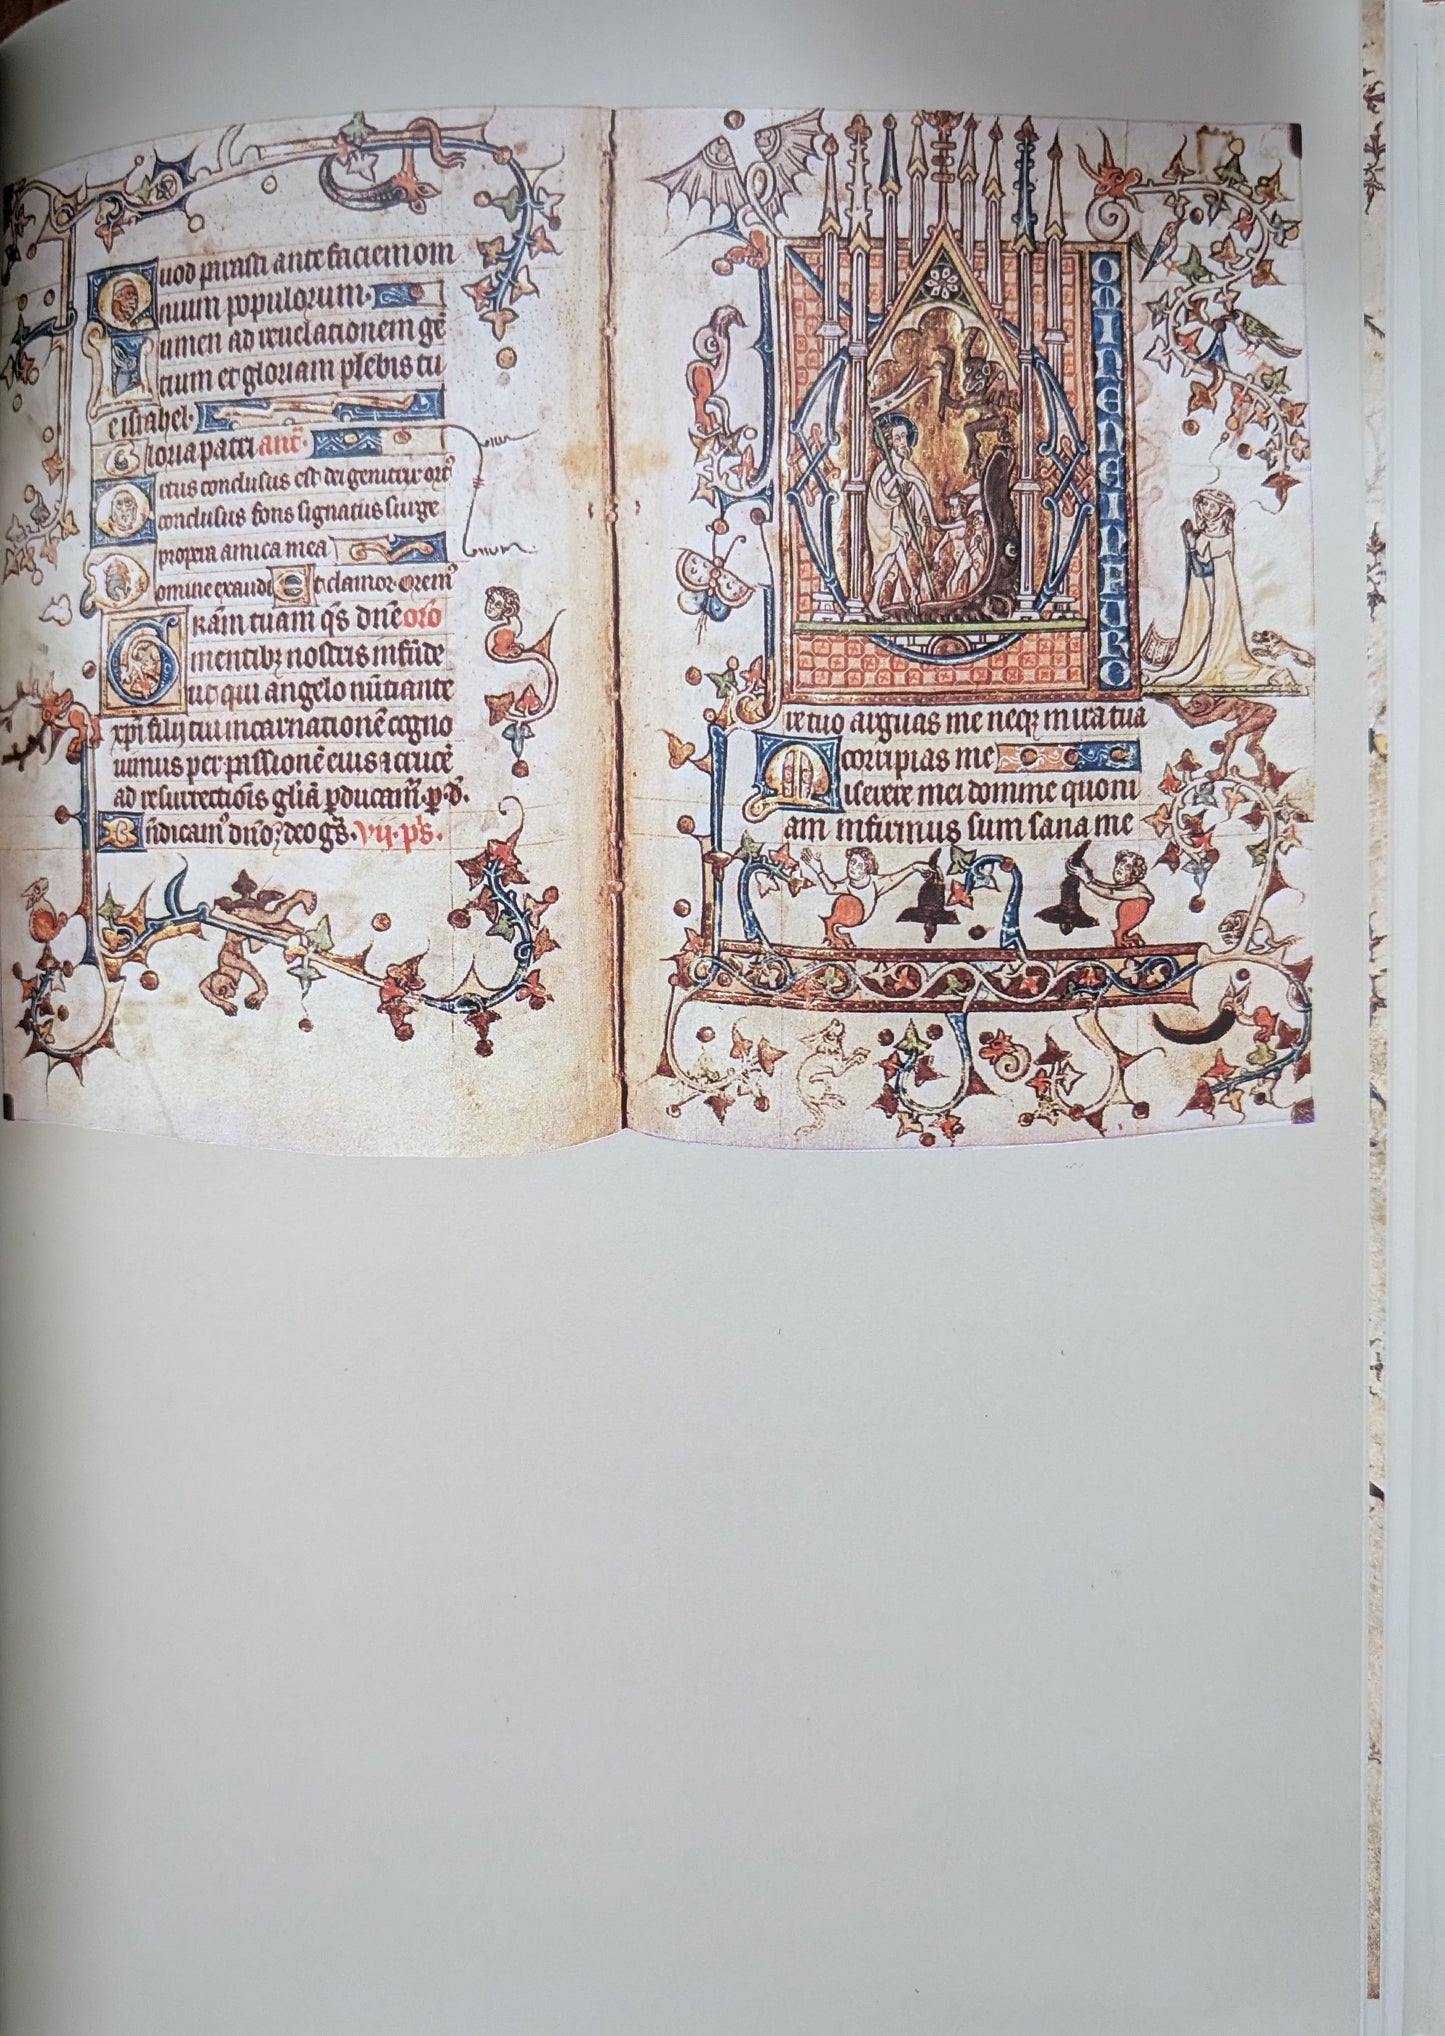 Quod parasti ante faciem om
nium populorum.
Lumen ad reuelationem gē
tium et gloriam plebis tu
e israhel.
Gloria patri ant̄.
Ortus conclusus est dei genitrix ort᾽
conclusus fons signatus surge
propera amica mea
Domine exaudi Et clamor. orem᾽
GRām tuam q̄s dn̄e orō
mentibꝫ nostris infūde
ut qui angelo nūtiante
xp̄i filij tui incarnationē cogno
uimus per passionē eius ⁊ crucē
ad resurrectiōis gl̄iā ꝑducam᾽. ꝑ. d᾽.
Bn̄dicam᾽ dn̄o. deo gr̄s. vij. ps̄.
DOMINE NE IN FURO
re tuo arguas me neqꝫ in ira tua
corripias me
Miserere mei domine quoni
am infirmus sum sana me